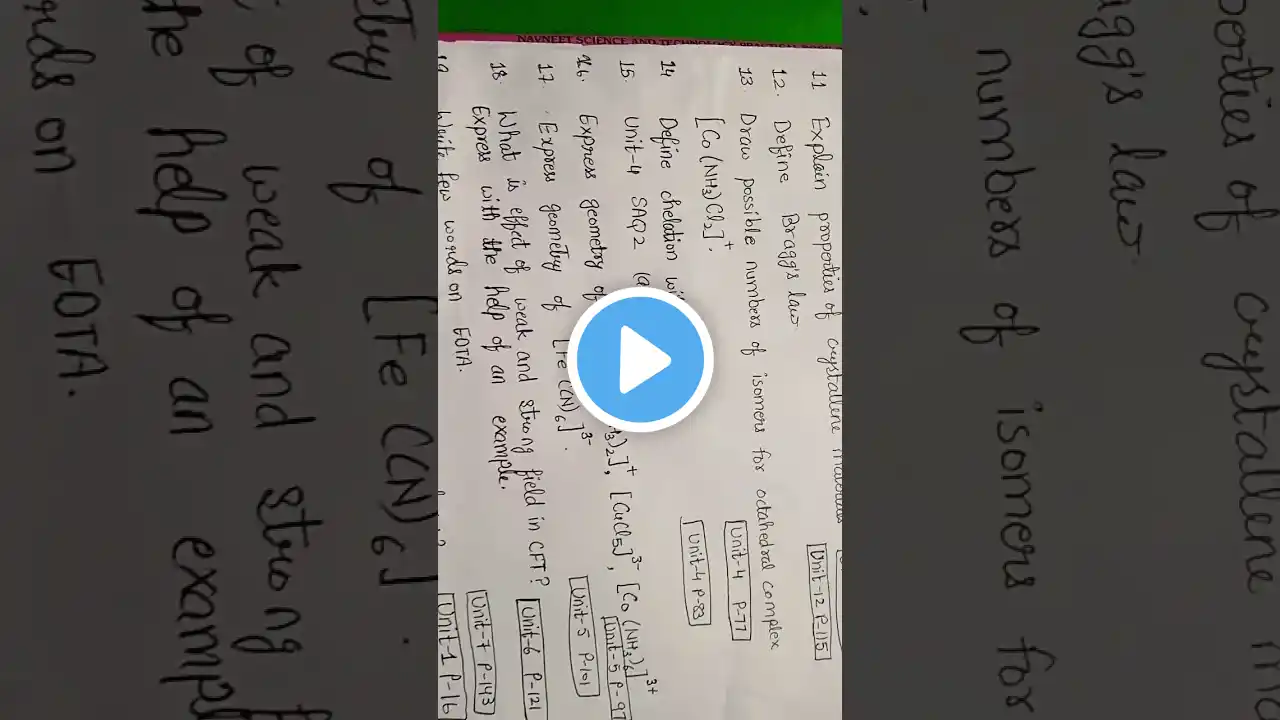 NAVNEET SCIENCE AND TECHNOLOGY PRACTICAL BOOK
11 Explain properties of crystallene materials
Unit-12 P-115
12. Define Bragg's law
13. Draw possible numbers of isomers for octahedral complex
[Co(NH3)Cl2]+.
Unit-4 P-77
14 Define chelation
Unit-4 P-83
15. Unit-4 SAQ2
16. Express geometry of )2]+, [CuCl5]3-, [Co(NH3)6]3+
Unit-5 P-97
Unit-5 P-101
17. Express geometry of [Fe(CN)6]3-.
Unit-6 P-121
18. What is effect of weak and strong field in CFT?
Express with the help of an example.
Unit-7 P-143
19. Write few words on EDTA.
Unit-1 P-16